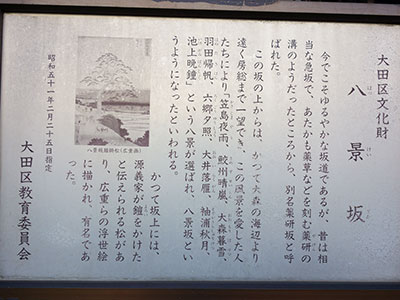 大田区文化財
八景坂
はっ けい ざか
今でこそゆるやかな坂道であるが、昔は相
当な急坂で、あたかも薬草などを刻む薬研の
溝のようだったところから、別名薬研坂と呼
ばれた。
この坂の上からは、かつて大森の海辺より
遠く房総まで一望でき、この風景を愛した人
たちにより「笠島夜雨、鮫州晴嵐、大森暮雪、
羽田帰帆、六郷夕照、大井落雁、袖浦秋月、
池上晩鐘」という八景が選ばれ、八景坂とい
うようになったといわれる。
かつて坂上には、
源義家が鎧をかけた
と伝えられる松があ
り、広重らの浮世絵
に描かれ、有名であ
った。
八景坂鎧掛松
昭和五十一年二月二十五日指定
大田区教育委員会